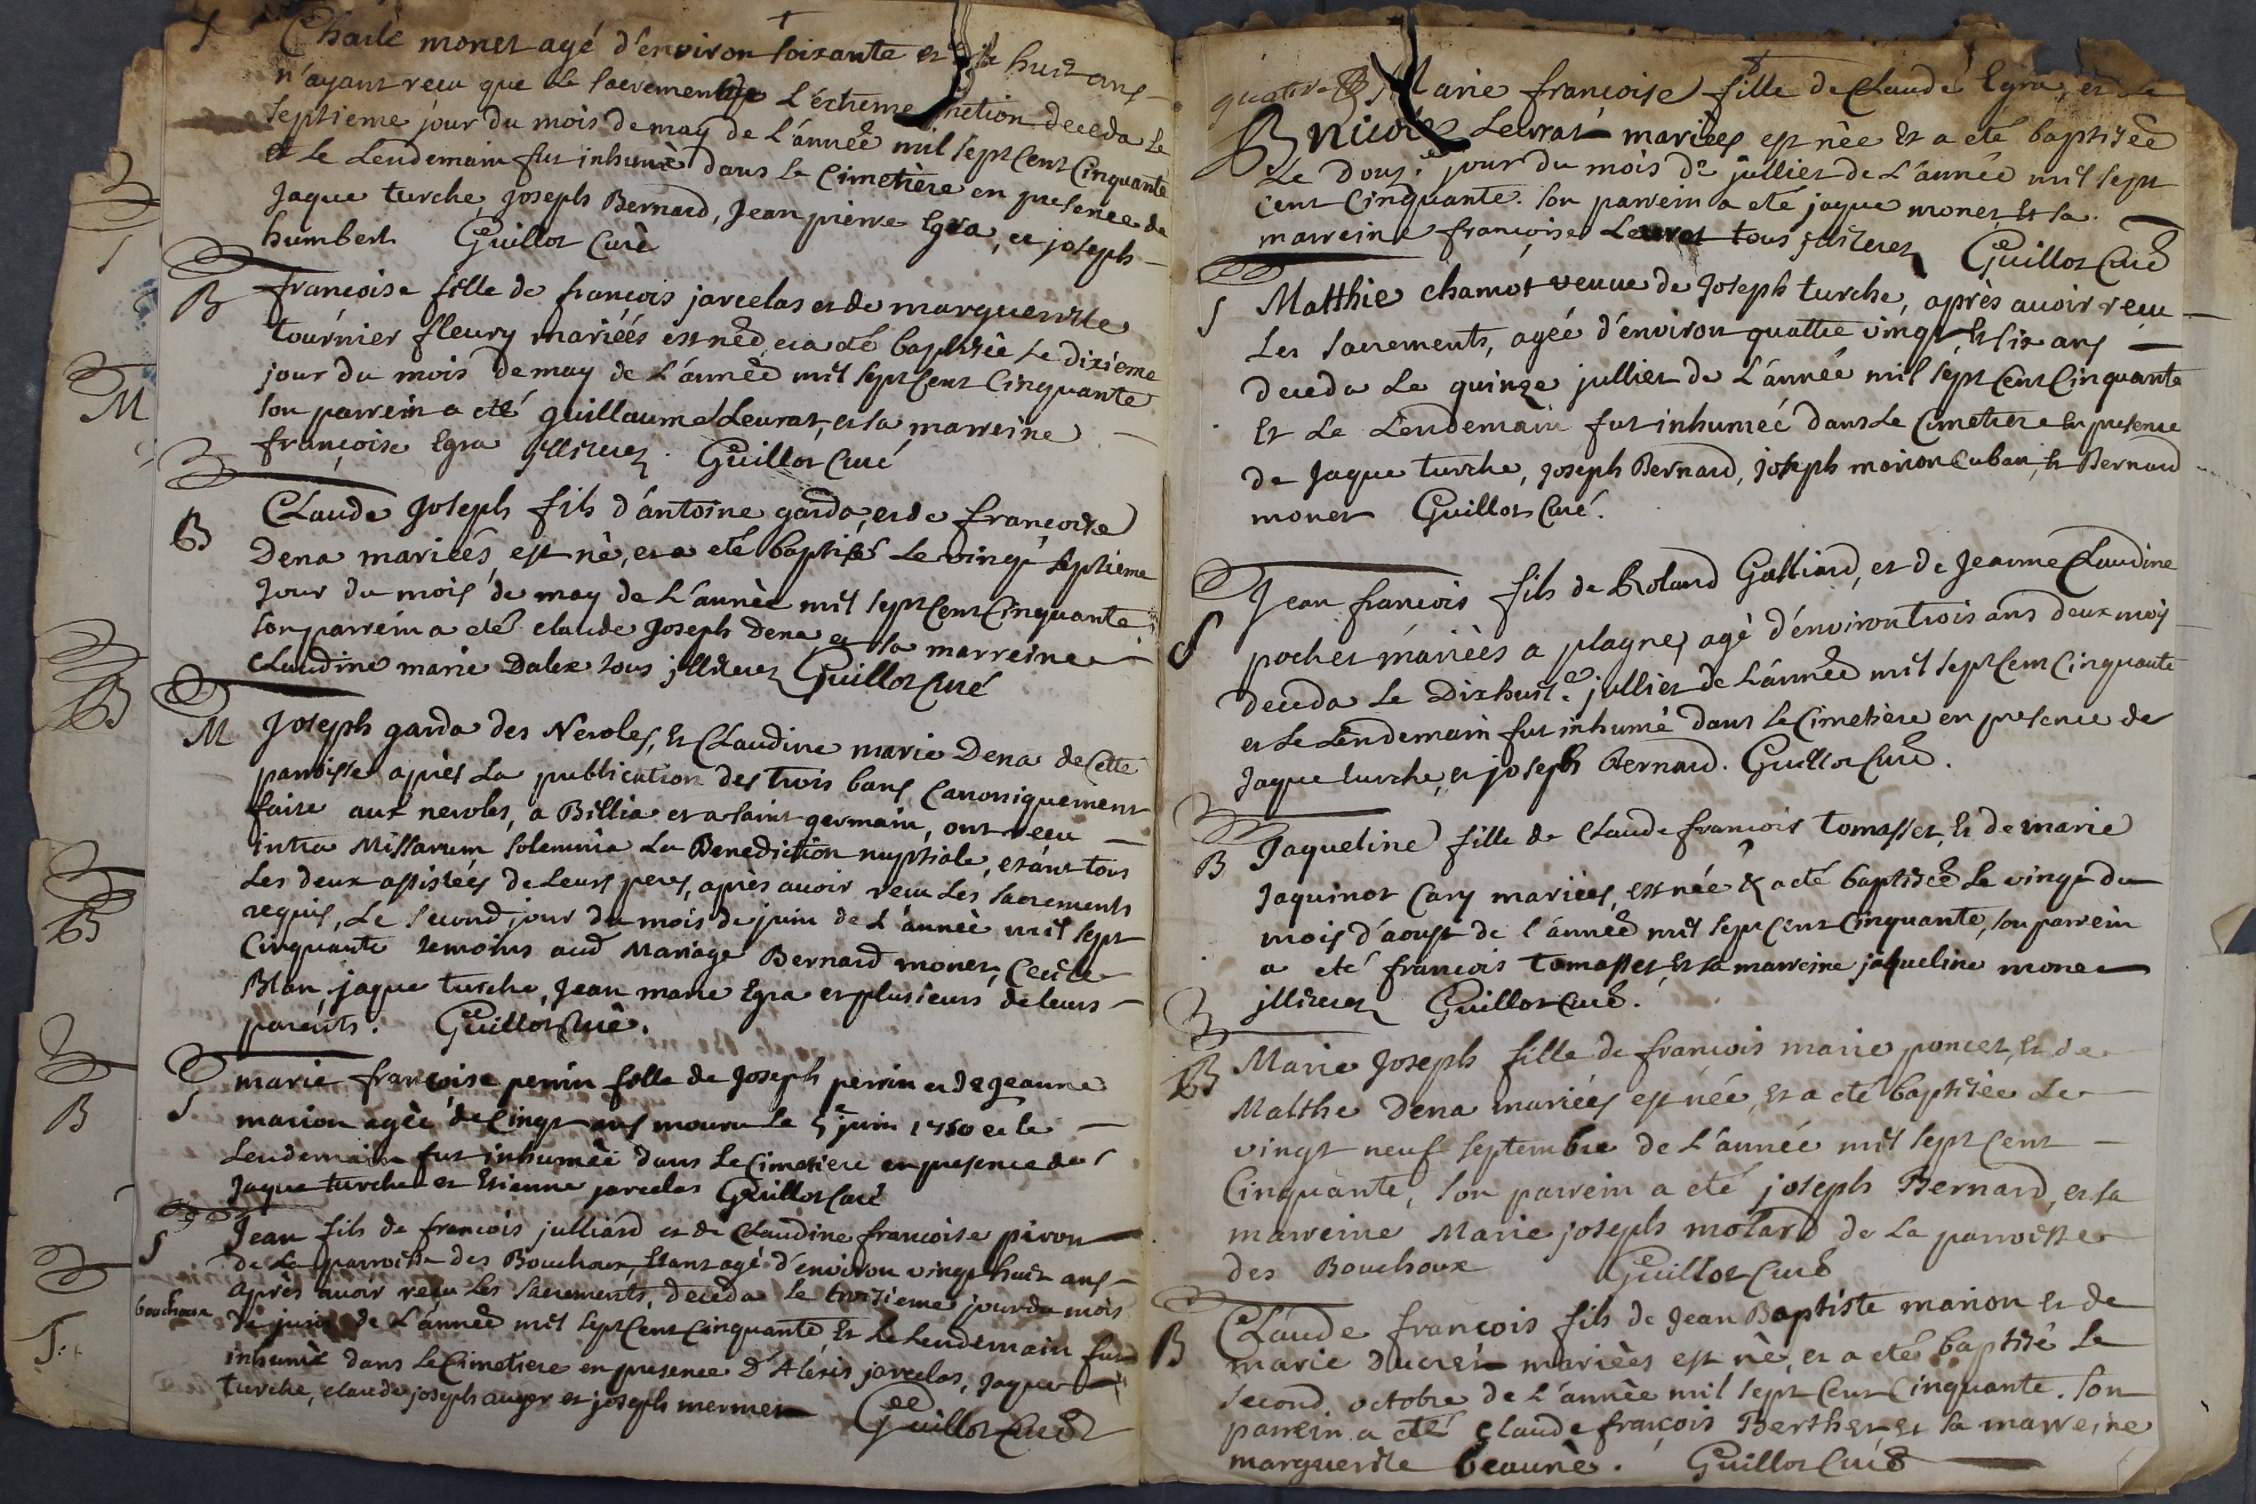 S Charle monet agé d'environ soixante et huit ans
n'ayant recu que le sacrement de L'éxtreme onction deceda Le
septieme jour du mois de may de L'année mil sept Cent Cinquante
et Le Lendemain fut inhumé dans Le Cimetière en presence de
Jaque turche, Joseph Bernard, Jean pierre Egra, et joseph
humbert Guillot Curé
B françoise fille de françois jarcelas et de marguerite
tournier fleury mariéés est néé, et a eté baptisée Le dixieme
jour du mois de may de L'année mil sept Cent Cinquante
son parrein a eté guillaume Leurat, et sa marreine
françoise Egra jlliterez. Guillot Curé
B Claude Joseph fils d'antoine garda, et de francoise
Dena mariéés, est né, et a eté baptisé Le vingt septieme
Jour du mois de may de L'année mil sept Cent Cinquante
son parrein a eté claude Joseph dena et sa marreine
Claudine marie Dalex tous jlliterez Guillot Curé
M Joseph garda des Neroles, Et Claudine marie Dena de Cette
parroisse après La publication des trois bans Canoniquement
faite aux neroles, a Billia et a saint germain, ont recu
intra Missarum solemnia La Benediction nuptiale, etánt tous
Les deux assistéés de Leurs peres, après auoir recu Les sacrements
requis, Le second jour du mois de juin de L'année mil sept
Cinquante temoins aud Mariage Bernard monet, Cecile
Blan, jaque turche, Jean marie Egra et plusieurs de leurs
parents. Guillot Curé.
S marie françoise perrin fille de Joseph perrin et de Jeanne
marion agéé de Cinqt ans mouru Le 5e juin 1750 et le
Lendemain fut inhumée dans Le Cimetiere en presence de
Jaque turche et Etienne jarcelas Guillot Curé
S Jean fils de françois julliard et de Claudine francoise piron
de La parroisse des Bouchoux, Etant agé d'environ vingt huit ans
bouchoux Après auoir reçu Les sacrements, deceda Le troisieme jour du mois
de juin de L'année mil sept Cent Cinquante Et Le Lendemain fut
inhumé dans Le Cimetiere en presence d'Alexis jarcelas, Jaque
turche, claude joseph auger et joseph mermet Guillot Curé
quatre Marie françoise fille de Claude Egra, et de
B nicole Leurat mariées est née Et a eté baptisée
Le douz.e jour du mois de jullier de L'année mil sept
Cent Cinquante. son parrein a eté jaque monet Et sa
marreine françoise Leurat tous jlliterez Guillot Curé
S Matthie chamot veuue de Joseph turche, après auoir recu
Les sacrements, agéé d'environ quattre vingt, Et six ans
deceda Le quinze jullier de L'année mil sept Cent Cinquante
Et Le Lendemain fut inhuméé dans Le Cimetiere En presence
de Jaque turche, joseph Bernard, joseph marion Cuban, Et Bernard
monet Guillot Curé.
Jean françois fils de Roland Galliard, et de Jeanne Claudine
S pochet mariéés a plagne, agé d'environ trois ans deux mois
deceda Le Dixhuit.e jullier de L'année mil sept Cent Cinquante
et Le Lendemain fut inhumé dans Le Cimetière en presence de
Jaque turche, et joseph Bernard. Guillot Curé.
B Jaqueline fille de Claude francois tomasset, Et de marie
Jaquinot Cary mariées, est née & a eté baptisée Le vingt du
mois d'aoust de l'année mil sept Cent Cinquante, son parrein
a eté francois tomasset Et sa marreine jaqueline monet
jlliterez Guillot Curé.
B Marie Joseph fille de francois marie poncet, Et de
Malthe Dena mariées est née, Et a eté baptisée Le
vingt neuf septembre de L'année mil sept Cent
Cinquante, son parrein a eté joseph Bernard, et sa
marreine Marie joseph molard de La parroisse
des Bouchoux Guillot Curé
Claude francois fils de Jean Baptiste marion Et de
B marie ducret mariées est né, et a eté baptisé Le
second octobre de L'année mil sept Cent Cinquante. son
parrein a eté Claude françois Berthet, Et sa marreine
marguerite beauné. Guillot Curé